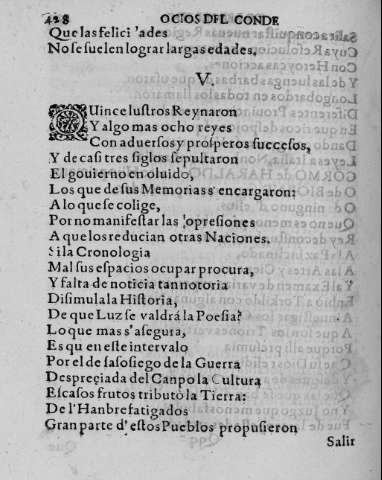 428 OCIOS DEL CONDE
Que las felici ades
No se suelen lograr largas edades,
V.
QUince lustros Reynaron
Y algo mas ocho reyes
Con adversos y prosperos sucesos,
Y de casi tres siglos sepultaron
El gouierno en oluido,
Los que de sus Memorias s' encargaron:
A lo que se colige,
Por no manifestar las opresiones
A que los reducian otras Naciones.
Si la Cronologia
Mal sus espacios ocupar procura,
Y falta de noticia tan notoria
Disimula la Historia,
De que Luz se valdrá la Poesia?
Lo que mas s'asegura,
Es qu en este intervalo
Por el desasosiego de la Guerra
Despreçiada del Canpo la Cultura
Escasos frutos tributò la Tierra:
De l'Hanbre fatigados
Gran parte d'estos Pueblos propusieron
Salir